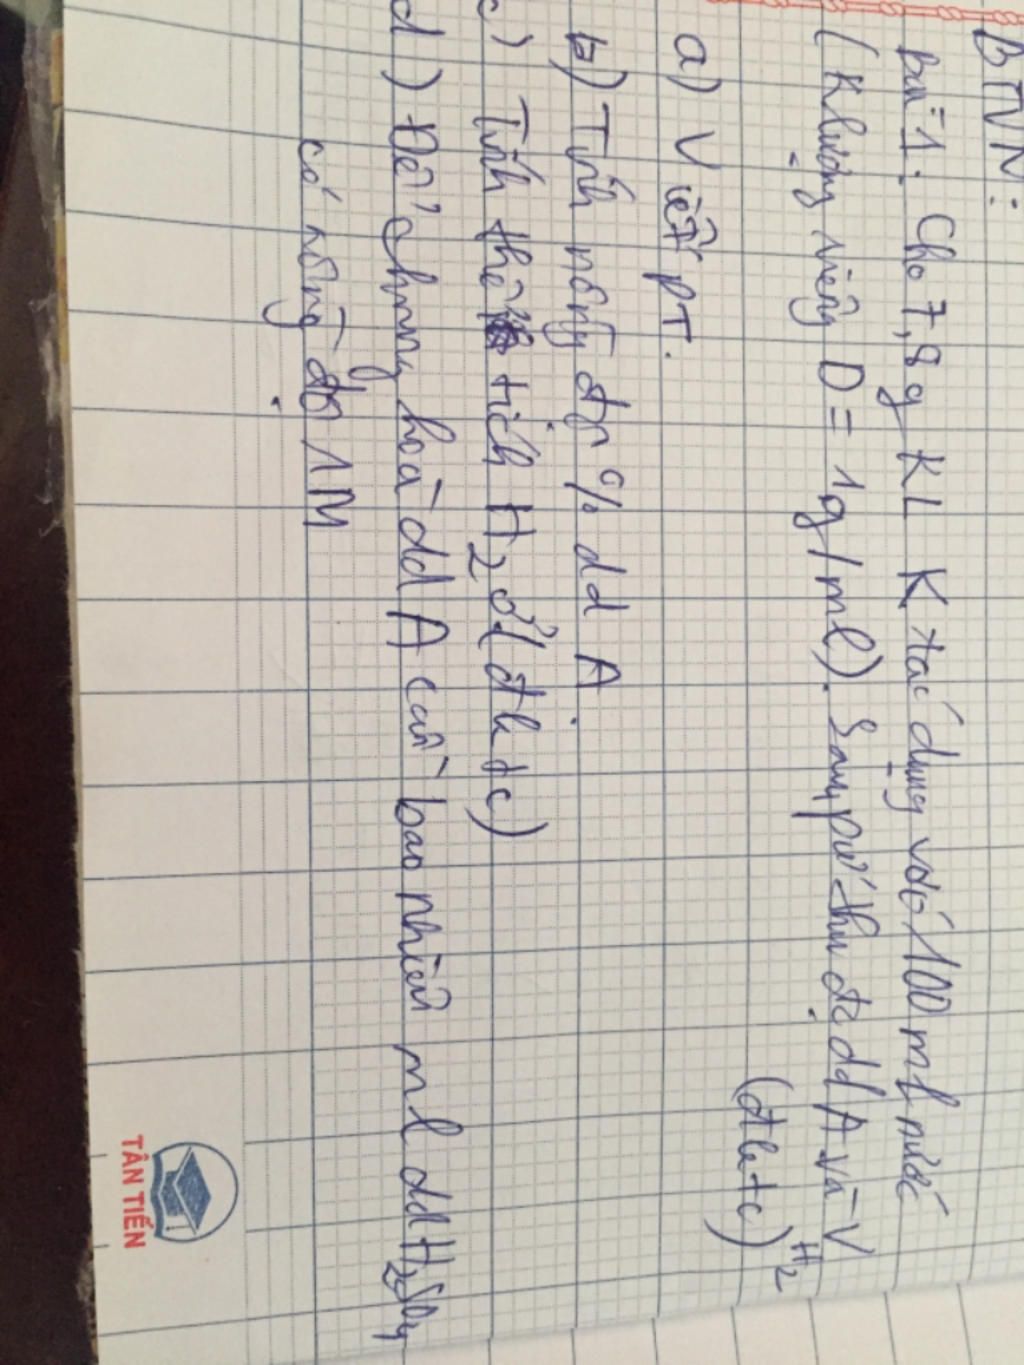 BTVN:
bài 1: Cho 7,8g KL K tác dụng với 100ml nước
(Khlượng riêng D = 1g/ml). Sau pứ thu đc dd A và V H2
(đktc)
a) Viết PT.
b) Tính nồng độ % dd A.
c) Tính thể tích H2 ở (đktc)
d) Để trung hoà dd A cần bao nhiêu ml dd H2SO4
có nồng độ 1M
TÂN TIẾN